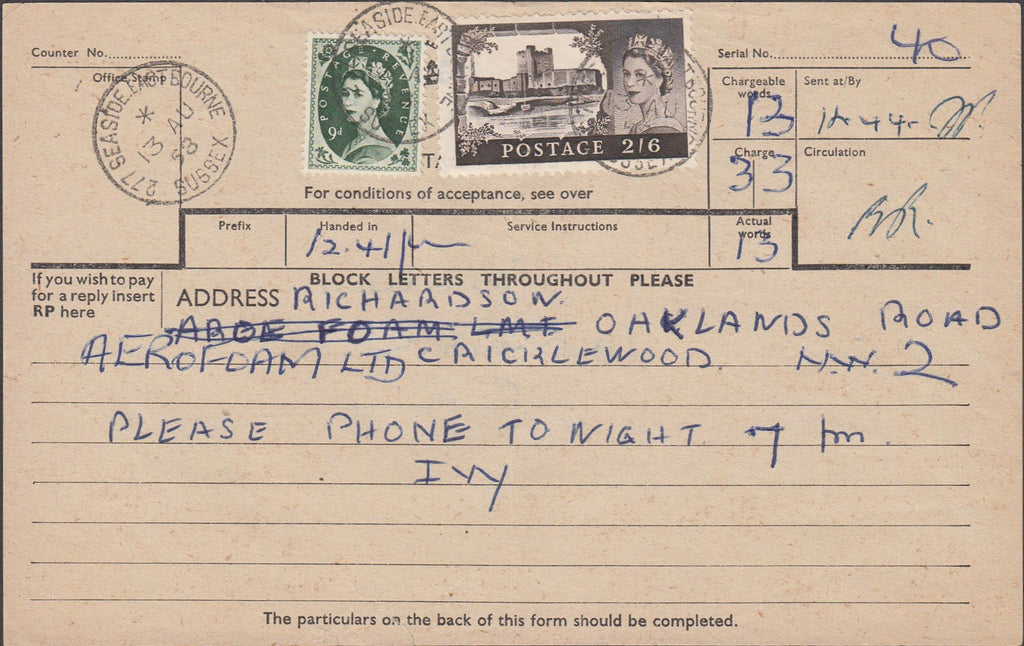 Counter No.
Office Stamp
277 SEASIDE. EASTBOURNE
13 AU
58
SUSSEX
POSTAGE REVENUE
9d
POSTAGE 2/6
Serial No. 40
Chargeable words 13
Sent at/By 12.44
Charge 33
Circulation BR.
For conditions of acceptance, see over
Prefix
Handed in 12.41
Service Instructions
Actual words 13
If you wish to pay for a reply insert RP here
BLOCK LETTERS THROUGHOUT PLEASE
ADDRESS RICHARDSON.
AROE FOAM LME OAKLANDS ROAD
AEROFOAM LTD CRICKLEWOOD. N.W. 2
PLEASE PHONE TO NIGHT 7 pm.
IVY
The particulars on the back of this form should be completed.